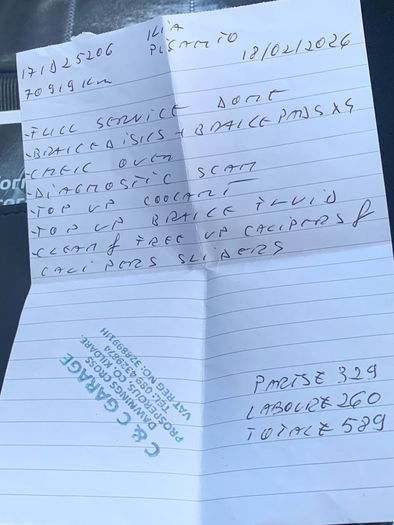 KIA
171D25206 PICANTO 18/02/2026
70919 Km
-FULL SERVICE DONE
-BRAKE DISKS + BRAKE PADS X4
-CHEK OVER
-DIAGNOSTIC SCAN
-TOP UP COOLANT
-TOP UP BRAKE FLUID
-CLEAN & FREE UP CALIPERS &
CALIPERS SLIDERS
C & C GARAGE
DAWNINGS CROSS
PROSPEROUS CO. KILDARE.
VAT REG NO: 3288991IH
PARTS € 329
LABOUR € 260
TOTAL € 589